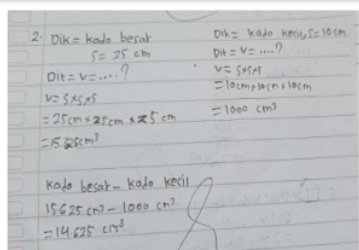 2. Dik = kado besar
S = 25 cm
Dit = V = ....?
V = S×S×S
= 25cm × 25cm × 25 cm
= 15.625cm³
Dik = kado kecil, S = 10 cm
Dit = V = ....?
V = S×S×S
= 10cm×10cm×10cm
= 1000 cm³
kado besar - kado kecil
15.625 cm³ - 1000 cm³
= 14.625 cm³